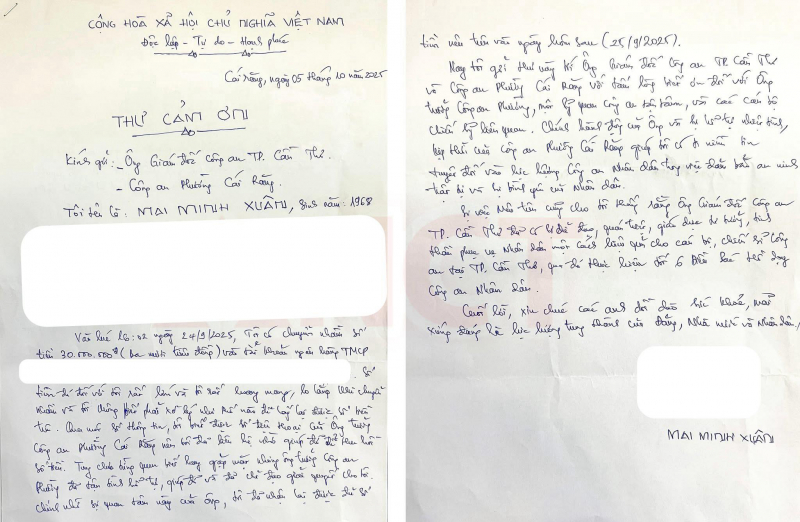 CỘNG HÒA XÃ HỘI CHỦ NGHĨA VIỆT NAM
Độc lập - Tự do - Hạnh phúc
Cái Răng, ngày 05 tháng 10 năm 2025
THƯ CẢM ƠN
Kính gửi: - Ông Giám đốc Công an TP. Cần Thơ.
- Công an Phường Cái Răng.
Tôi tên là: MAI MINH XUÂN, Sinh năm: 1968
Vào lúc 16:02 ngày 24/9/2025, Tôi có chuyển nhầm số
tiền 30.000.000đ (ba mươi triệu đồng) vào tài khoản ngân hàng TMCP
Số
tiền đó đối với tôi rất lớn và tôi rất hoang mang, lo lắng khi chuyển
nhầm và tôi không biết phải xử lý như thế nào để lấy lại được số tiền
trên. Qua một số thông tin, tôi biết được số điện thoại của Ông trưởng
Công an Phường Cái Răng nên tôi đã liên hệ nhờ giúp đỡ để tìm lại
số tiền. Tuy chưa từng quen biết hay gặp mặt nhưng ông trưởng Công an
Phường đã tận tình hỗ trợ, giúp đỡ và đã chỉ đạo giải quyết cho tôi.
Chính nhờ sự quan tâm này của Ông, tôi đã nhận lại được đủ số
tiền nêu trên vào ngày hôm sau (25/9/2025).
Nay tôi gửi thư này tới Ông Giám đốc Công an TP. Cần Thơ
và Công an Phường Cái Răng với tấm lòng biết ơn đối với Ông
trưởng Công an Phường, một sỹ quan công an tận tâm, và các cán bộ
chiến sỹ liên quan. Chính hành động của Ông và sự hỗ trợ nhiệt tình,
kịp thời của Công an Phường Cái Răng giúp tôi có thêm niềm tin
tuyệt đối vào lực lượng Công an Nhân dân trong việc đảm bảo an ninh
trật tự và sự bình yên của Nhân dân.
Sự việc nêu trên cũng cho tôi thấy rằng Ông Giám đốc Công an
TP. Cần Thơ đã có sự chỉ đạo, quán triệt, giáo dục tư tưởng, tinh
thần phục vụ Nhân dân một cách hiệu quả cho cán bộ, chiến sỹ Công
an tại TP. Cần Thơ, qua đó thực hiện tốt 6 Điều Bác Hồ dạy
Công an Nhân dân.
Cuối lời, xin chúc các anh dồi dào sức khoẻ, mãi
xứng đáng là lực lượng trung thành của Đảng, Nhà nước và Nhân dân,
MAI MINH XUÂN